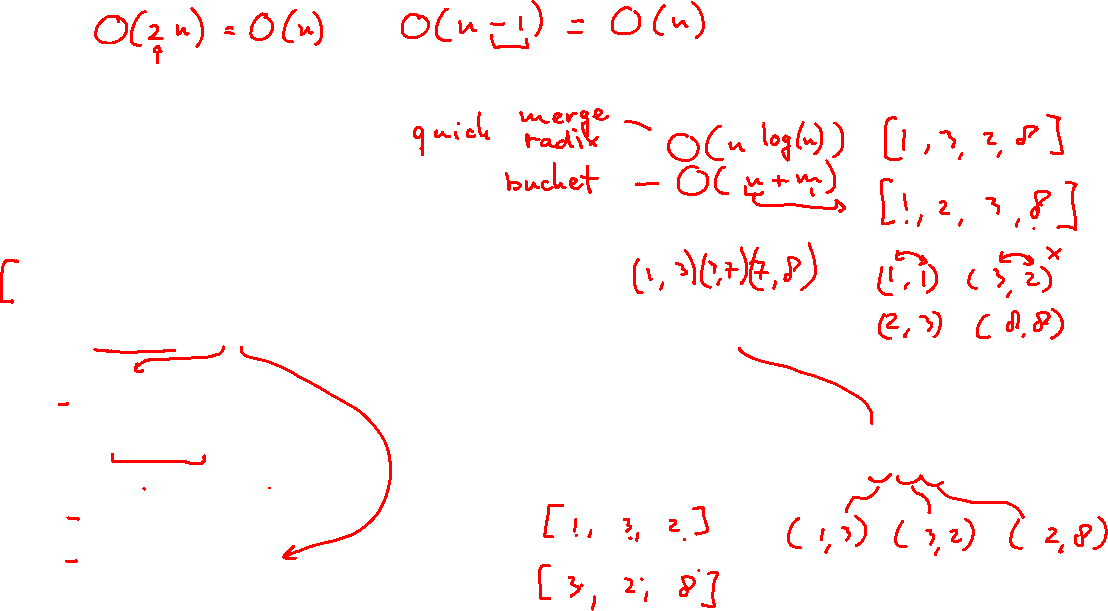 O(2n) = O(n) O(n-1) = O(n)
quick merge
radix
O(n log(n)) [1, 3, 2, 8]
bucket - O(n+m)
[1, 2, 3, 8]
(1, 3) (7, 8) (1, 1) (3, 2) x
(2, 3) (8, 8)
[
[1, 3, 2] (1, 3) (3, 2) (2, 8)
[3, 2, 8]